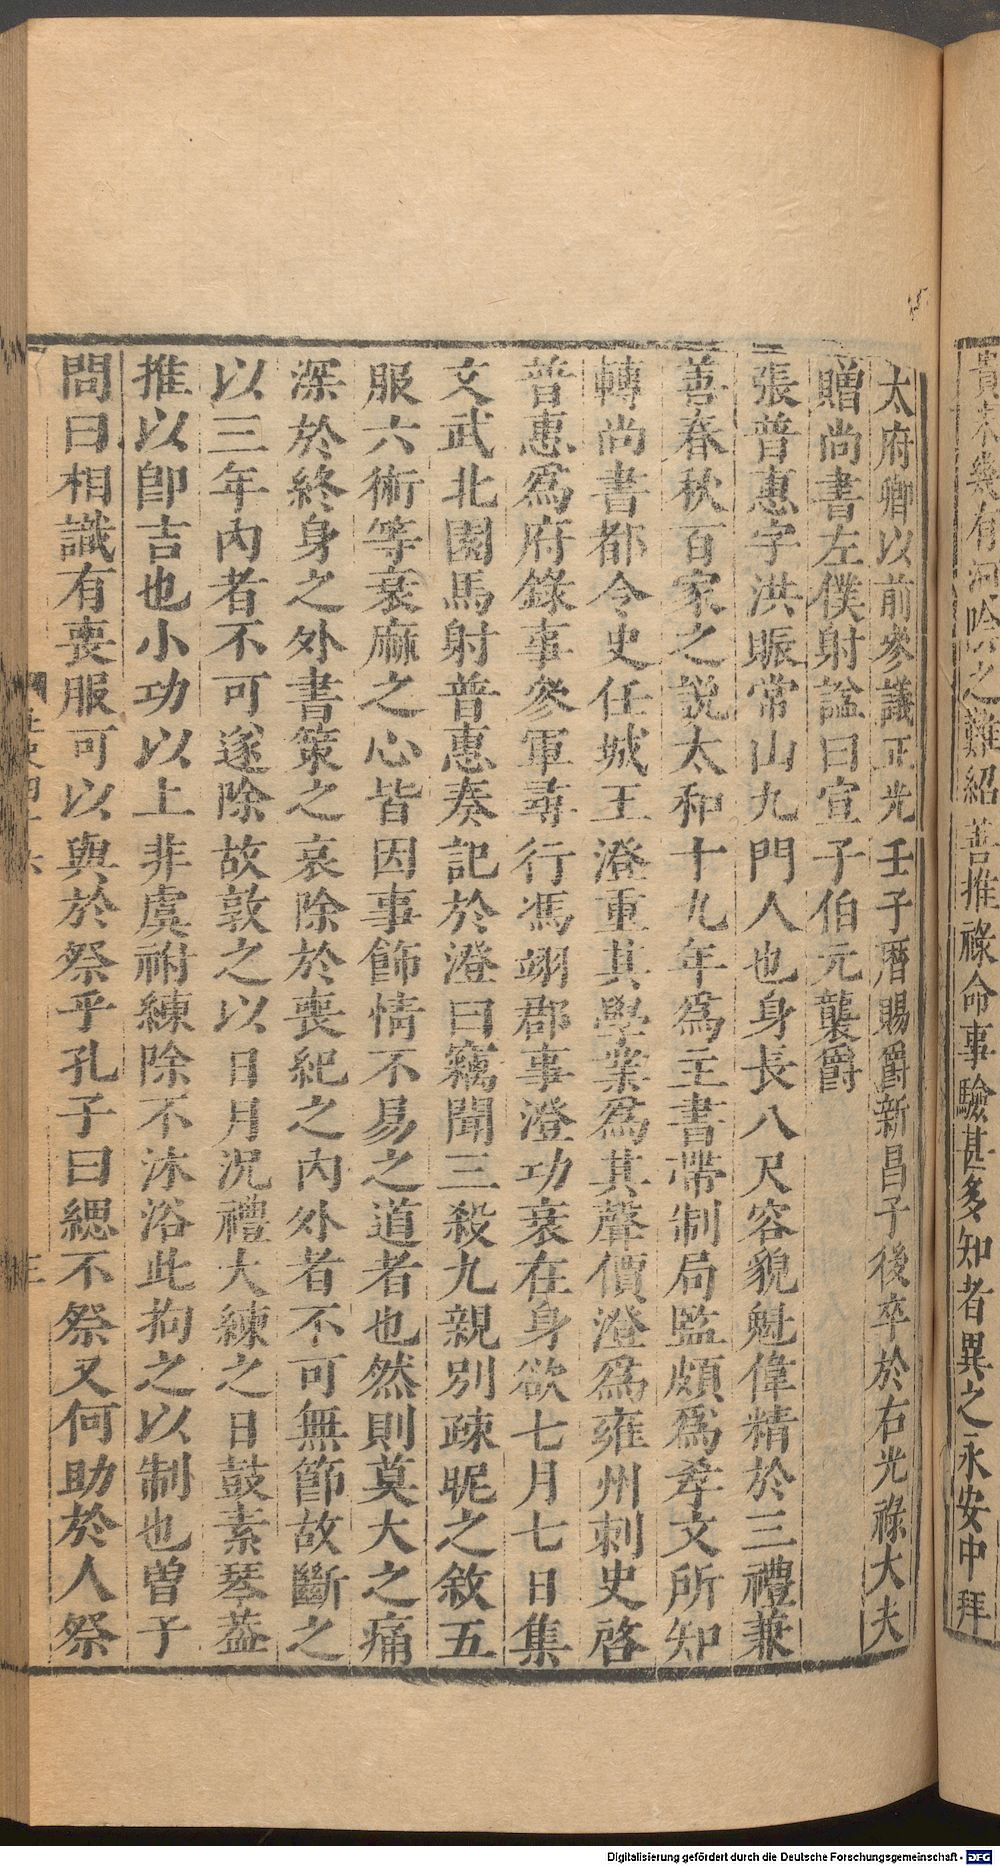 貴未幾有河陰之難紹善推祿命事驗甚多知者異之永安中拜
太府卿以前參議正光壬子曆賜爵新昌子後卒於右光祿大夫
贈尚書左僕射諡曰宣子伯元襲爵
張普惠字洪賑常山九門人也身長八尺容貌魁偉精於三禮兼
善春秋百家之說太和十九年爲主書帶制局監頗爲孝文所知
轉尚書都令史任城王澄重其學業爲其聲價澄爲雍州刺史啓
普惠爲府錄事參軍尋行馮翊郡事澄功衰在身欲七月七日集
文武北園馬射普惠奏記於澄曰竊聞三殺九親別疎昵之敘五
服六術等衰麻之心皆因事飾情不易之道者也然則莫大之痛
深於終身之外書策之哀除於喪紀之內外者不可無節故斷之
以三年內者不可遂除故敦之以日月況禮大練之日鼓素琴葢
推以卽吉也小功以上非虞祔練除不沐浴此拘之以制也曽子
問曰相識有喪服可以與於祭乎孔子曰緦不祭又何助於人祭
Digitalisierung gefördert durch die Deutsche Forschungsgemeinschaft - DFG